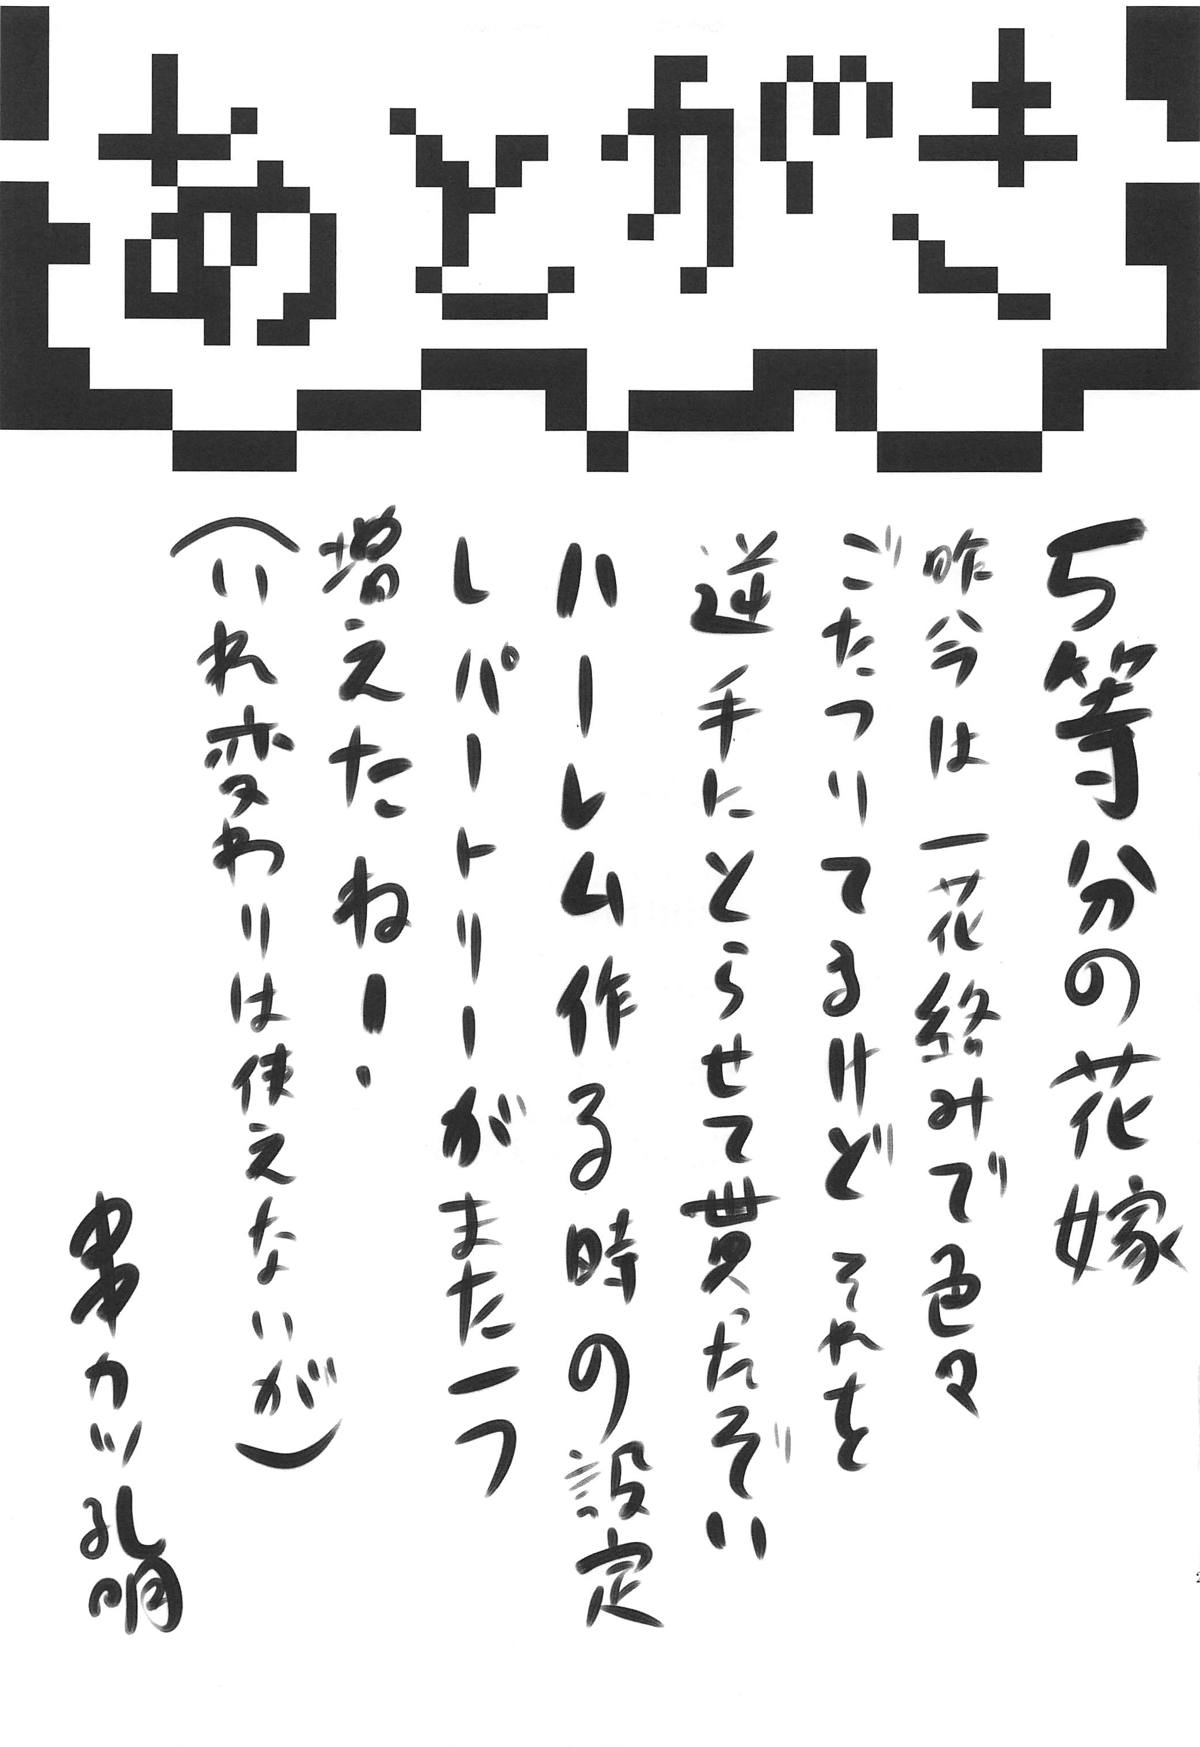 あとがき
5等分の花嫁
昨今は一花絡みで色々
ごたついてるけど それを
逆手にとらせて貰ったぞい
ハーレム作る時の設定
レパートリーがまた一つ
増えたね!
(いれ変わりは使えないが)
串カツ孔明